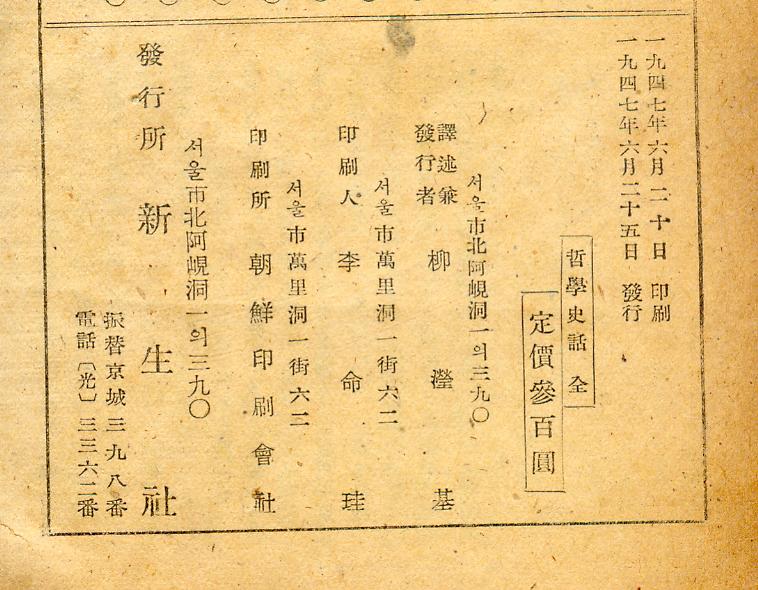 一九四七年六月二十日 印刷
一九四七年六月二十五日 發行
哲學史話 全
定價參百圓
서울市北阿峴洞一의三九〇
譯述兼
發行者 柳瀅基
서울市萬里洞一街六二
印刷人 李命珪
서울市萬里洞一街六二
印刷所 朝鮮印刷會社
서울市北阿峴洞一의三九〇
發行所 新生社
振替京城三九八番
電話〔光〕三三六二番